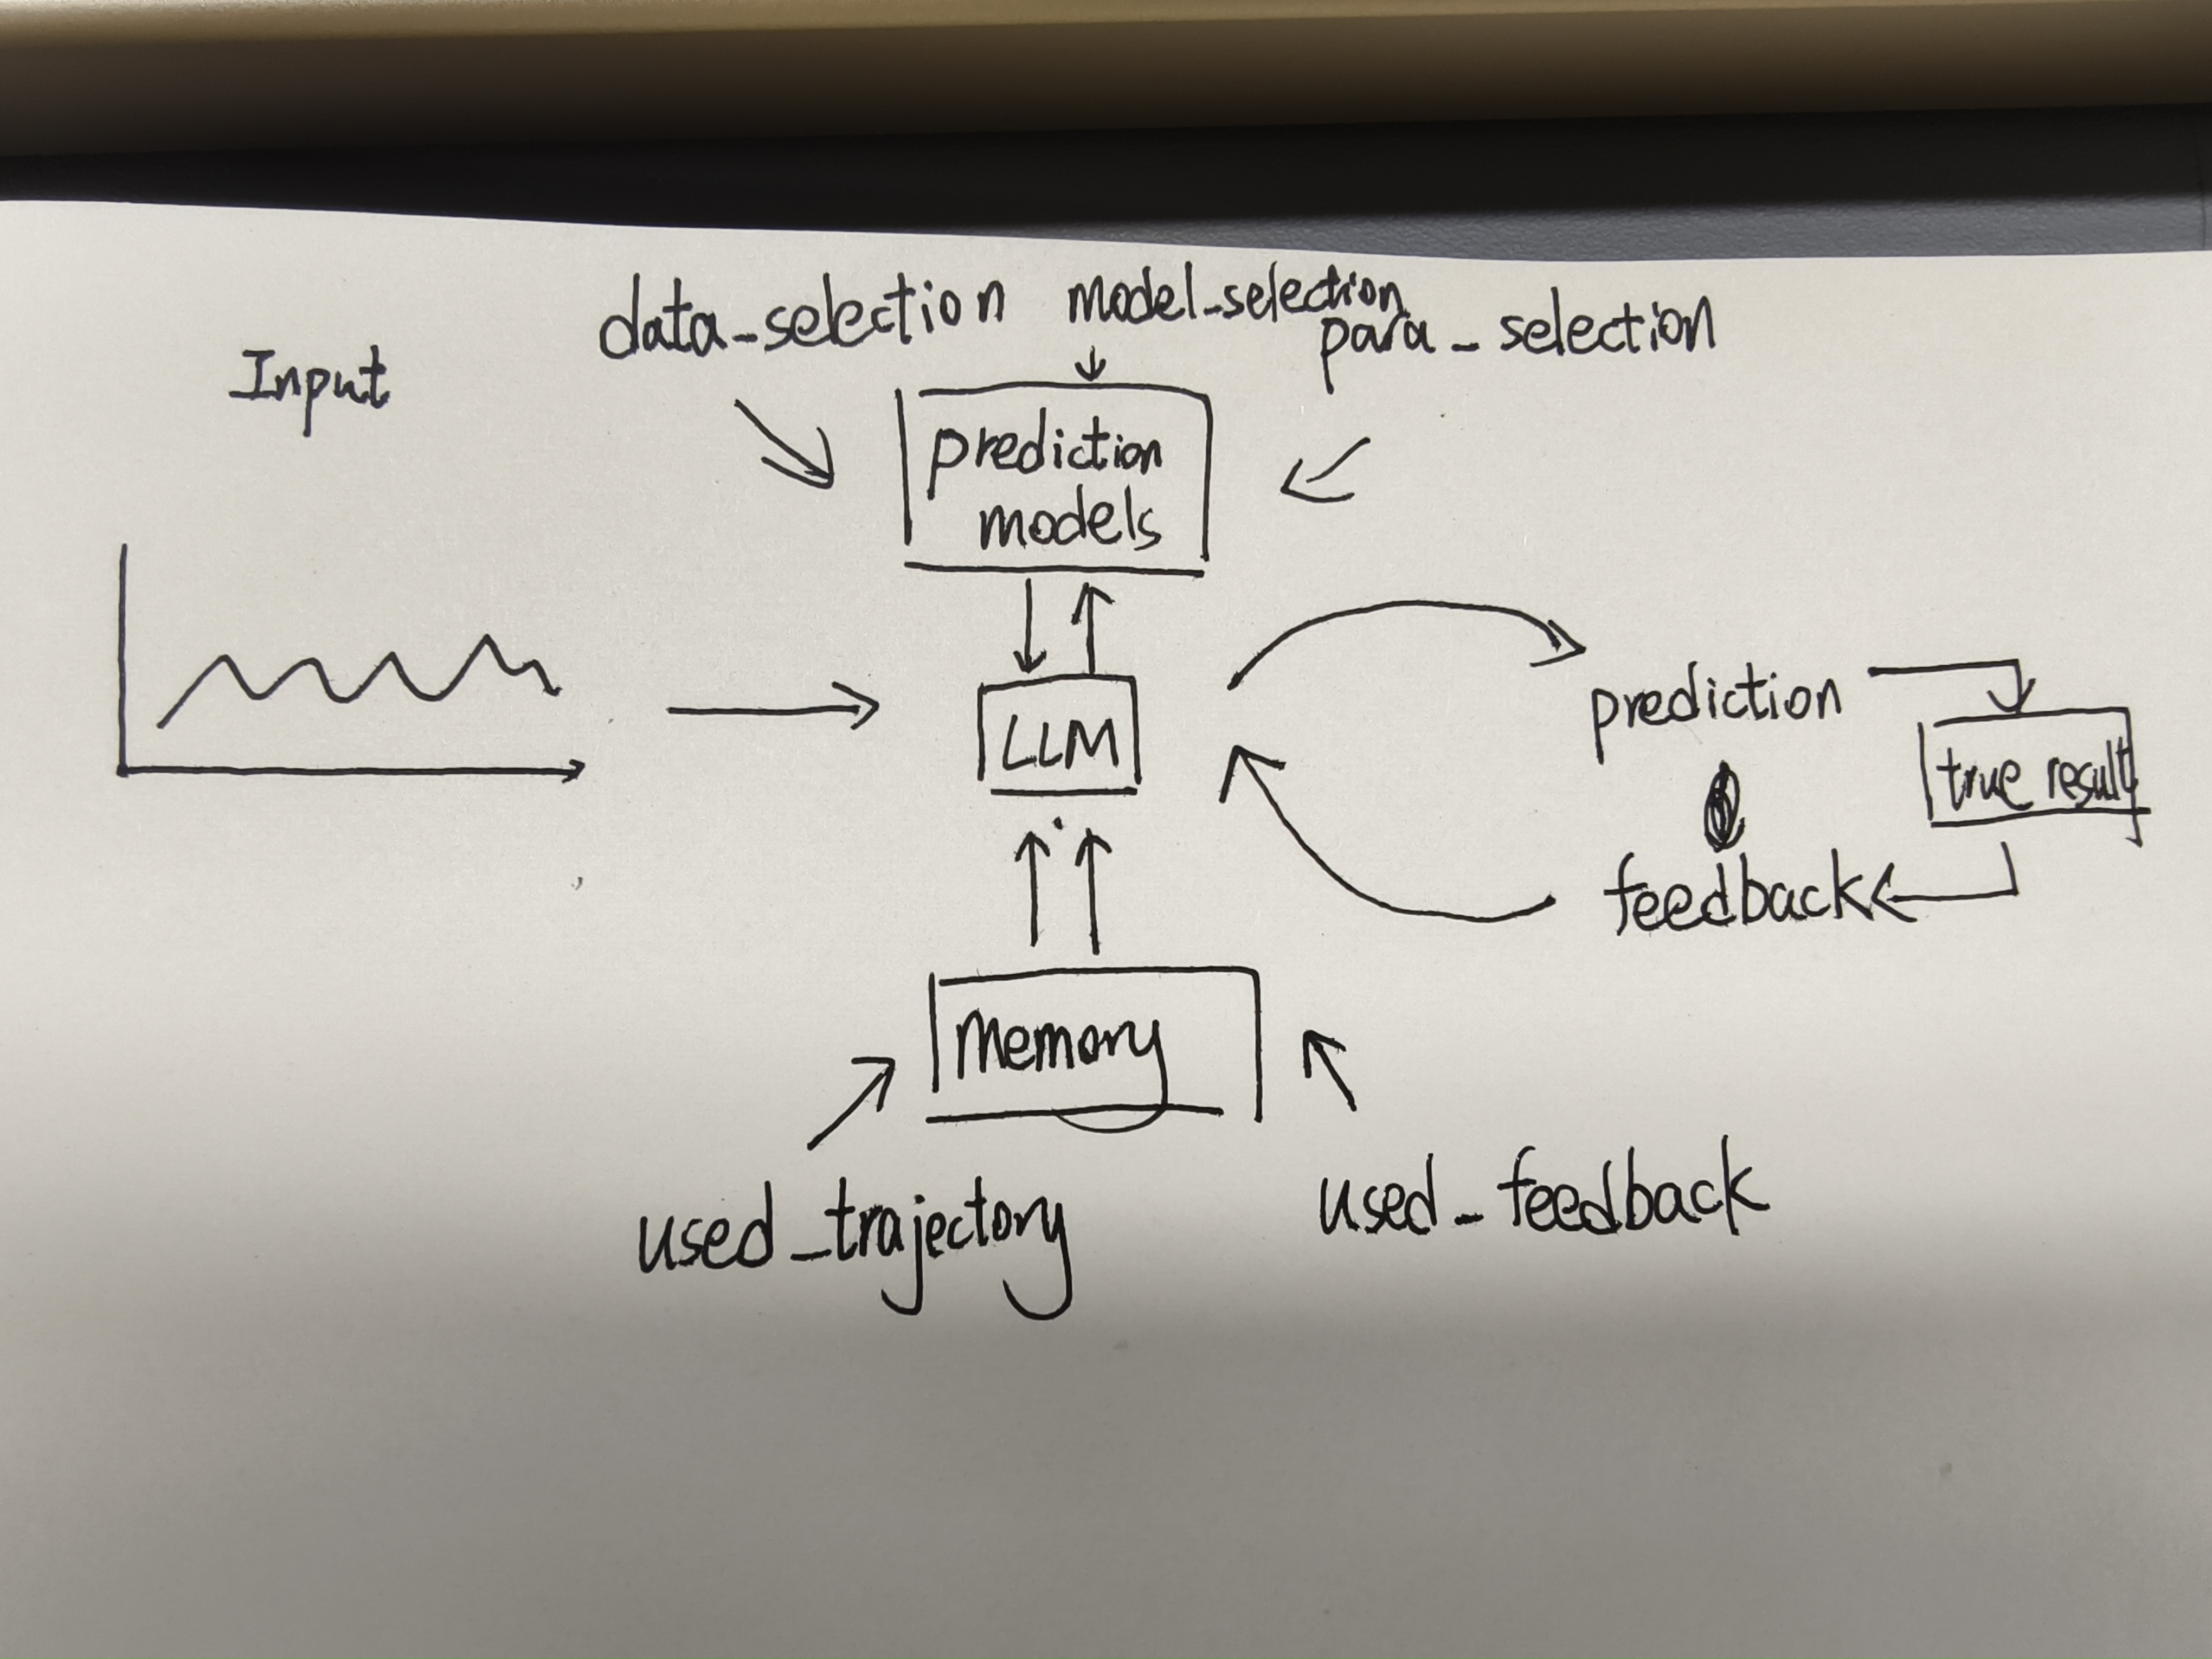 data_selection
model_selection
para_selection
Input
prediction
models
LLM
prediction
true result
feedback
Memory
used_trajectory
used_feedback